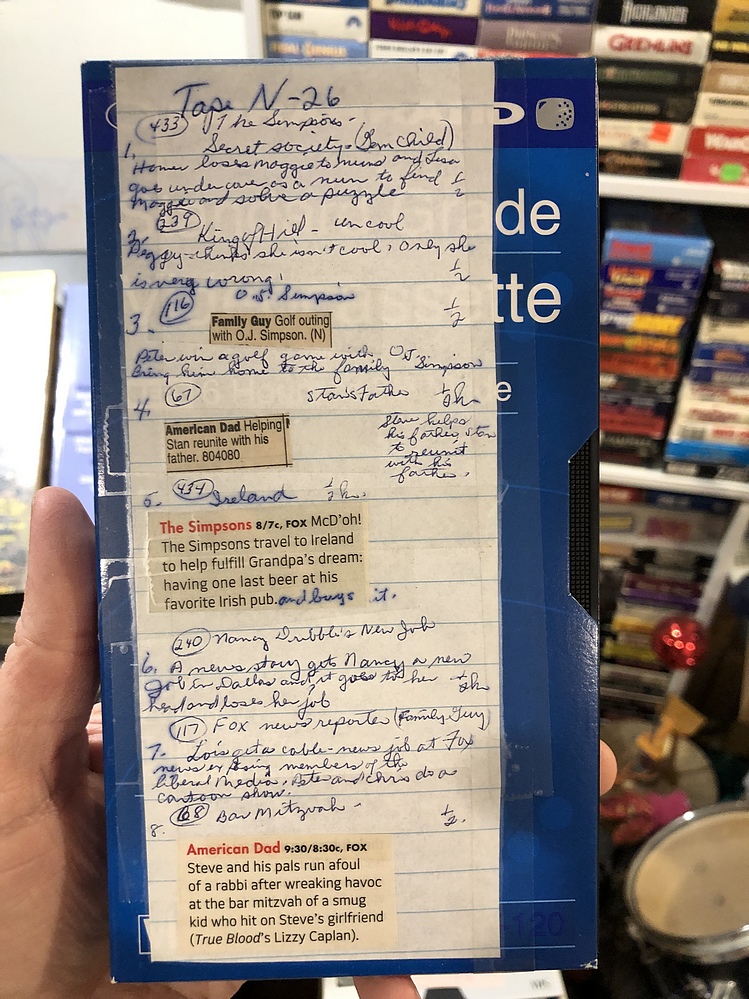 Tape N-26
433 The Simpsons-
1. Secret society-(Gem Child)
Homer loses Maggie to nuns and Lisa
goes undercover as a nun to find 1/2
Maggie and solve a puzzle
239
2. King of Hill - uncool
Peggy thinks she isn't cool, only she
is very wrong! 1/2
116 O.J. Simpson 1/2
3. Family Guy Golf outing
with O.J. Simpson. (N)
Peter win a golf game with OJ Simpson
Bring him home to the family
67 Stan's Father 1/2 h
4. American Dad Helping
Stan reunite with his
father. 804080
Steve helps
his father, Stan
to reunit
with his
father.
5. 434 Ireland 1/2 h.
The Simpsons 8/7c, FOX McD'oh!
The Simpsons travel to Ireland
to help fulfill Grandpa's dream:
having one last beer at his
favorite Irish pub. and buys it.
240 Nancy Gribble's New Job
6. A news story gets Nancy a new
Job in Dallas and it goes to her 1/2 h
head and loses her job
117 Fox news reporter (Family Guy)
7. Lois gets a cable-news job at Fox
news members of the
liberal Media, Pete and Chris do a
cartoon show.
68 Bar Mitzvah - 1/2.
8. American Dad 9:30/8:30c, FOX
Steve and his pals run afoul
of a rabbi after wreaking havoc
at the bar mitzvah of a smug
kid who hit on Steve's girlfriend
(True Blood's Lizzy Caplan).
de
tte
e
120
HIGHLANDER
GREMLINS